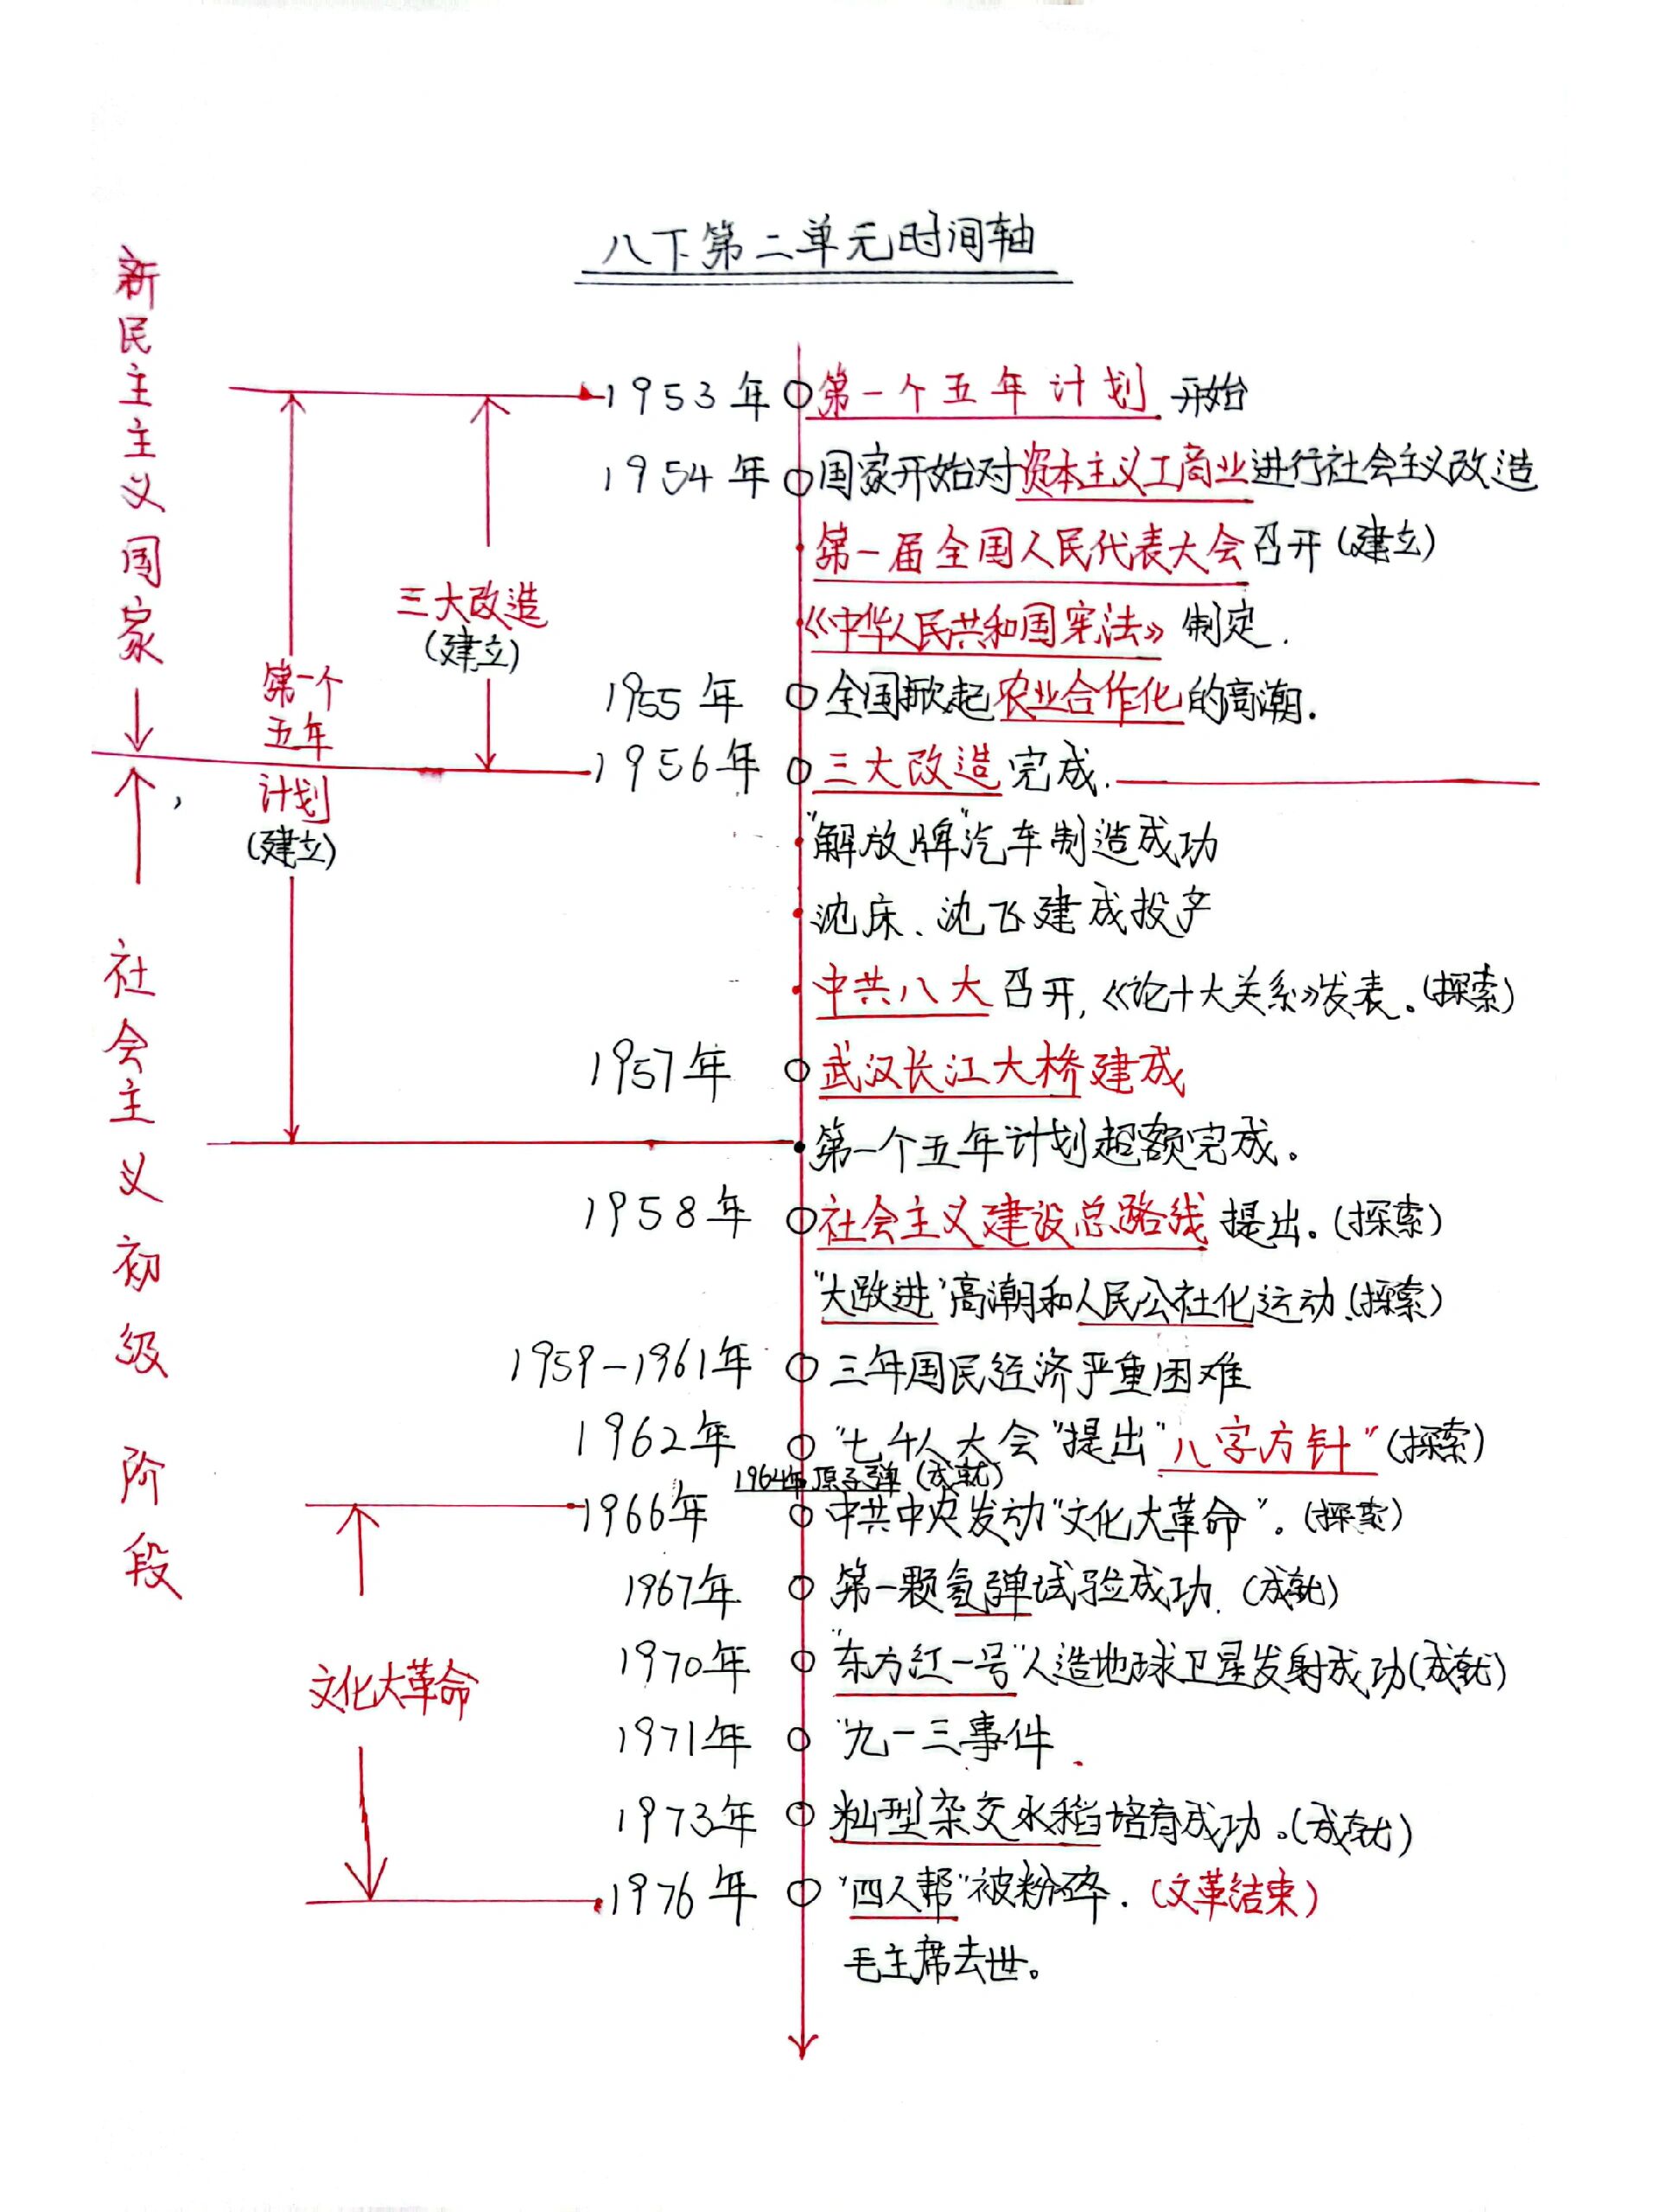 八下第二单元时间轴
新民主主义国家
1953年 第一个五年计划 开始
1954年 国家开始对资本主义工商业进行社会主义改造
第一届全国人民代表大会召开(建立)
三大改造
(建立)
《中华人民共和国宪法》制定.
第一个
五年
计划
(建立)
1955年 全国掀起农业合作化的高潮.
1956年 三大改造完成.
"解放牌"汽车制造成功
沈床、沈飞建成投产
社会主义初级阶段
中共八大召开,《论十大关系》发表。(探索)
1957年 武汉长江大桥建成
第一个五年计划超额完成。
1958年 社会主义建设总路线提出。(探索)
"大跃进"高潮和人民公社化运动.(探索)
1959-1961年 三年国民经济严重困难
1962年 "七千人大会"提出"八字方针"(探索)
1964年原子弹(成就)
1966年 中共中央发动"文化大革命"。(探索)
1967年 第一颗氢弹试验成功.(成就)
文化大革命
1970年 "东方红一号"人造地球卫星发射成功(成就)
1971年 "九一三事件.
1973年 籼型杂交水稻培育成功。(成就)
1976年 "四人帮"被粉碎.(文革结束)
毛主席去世。